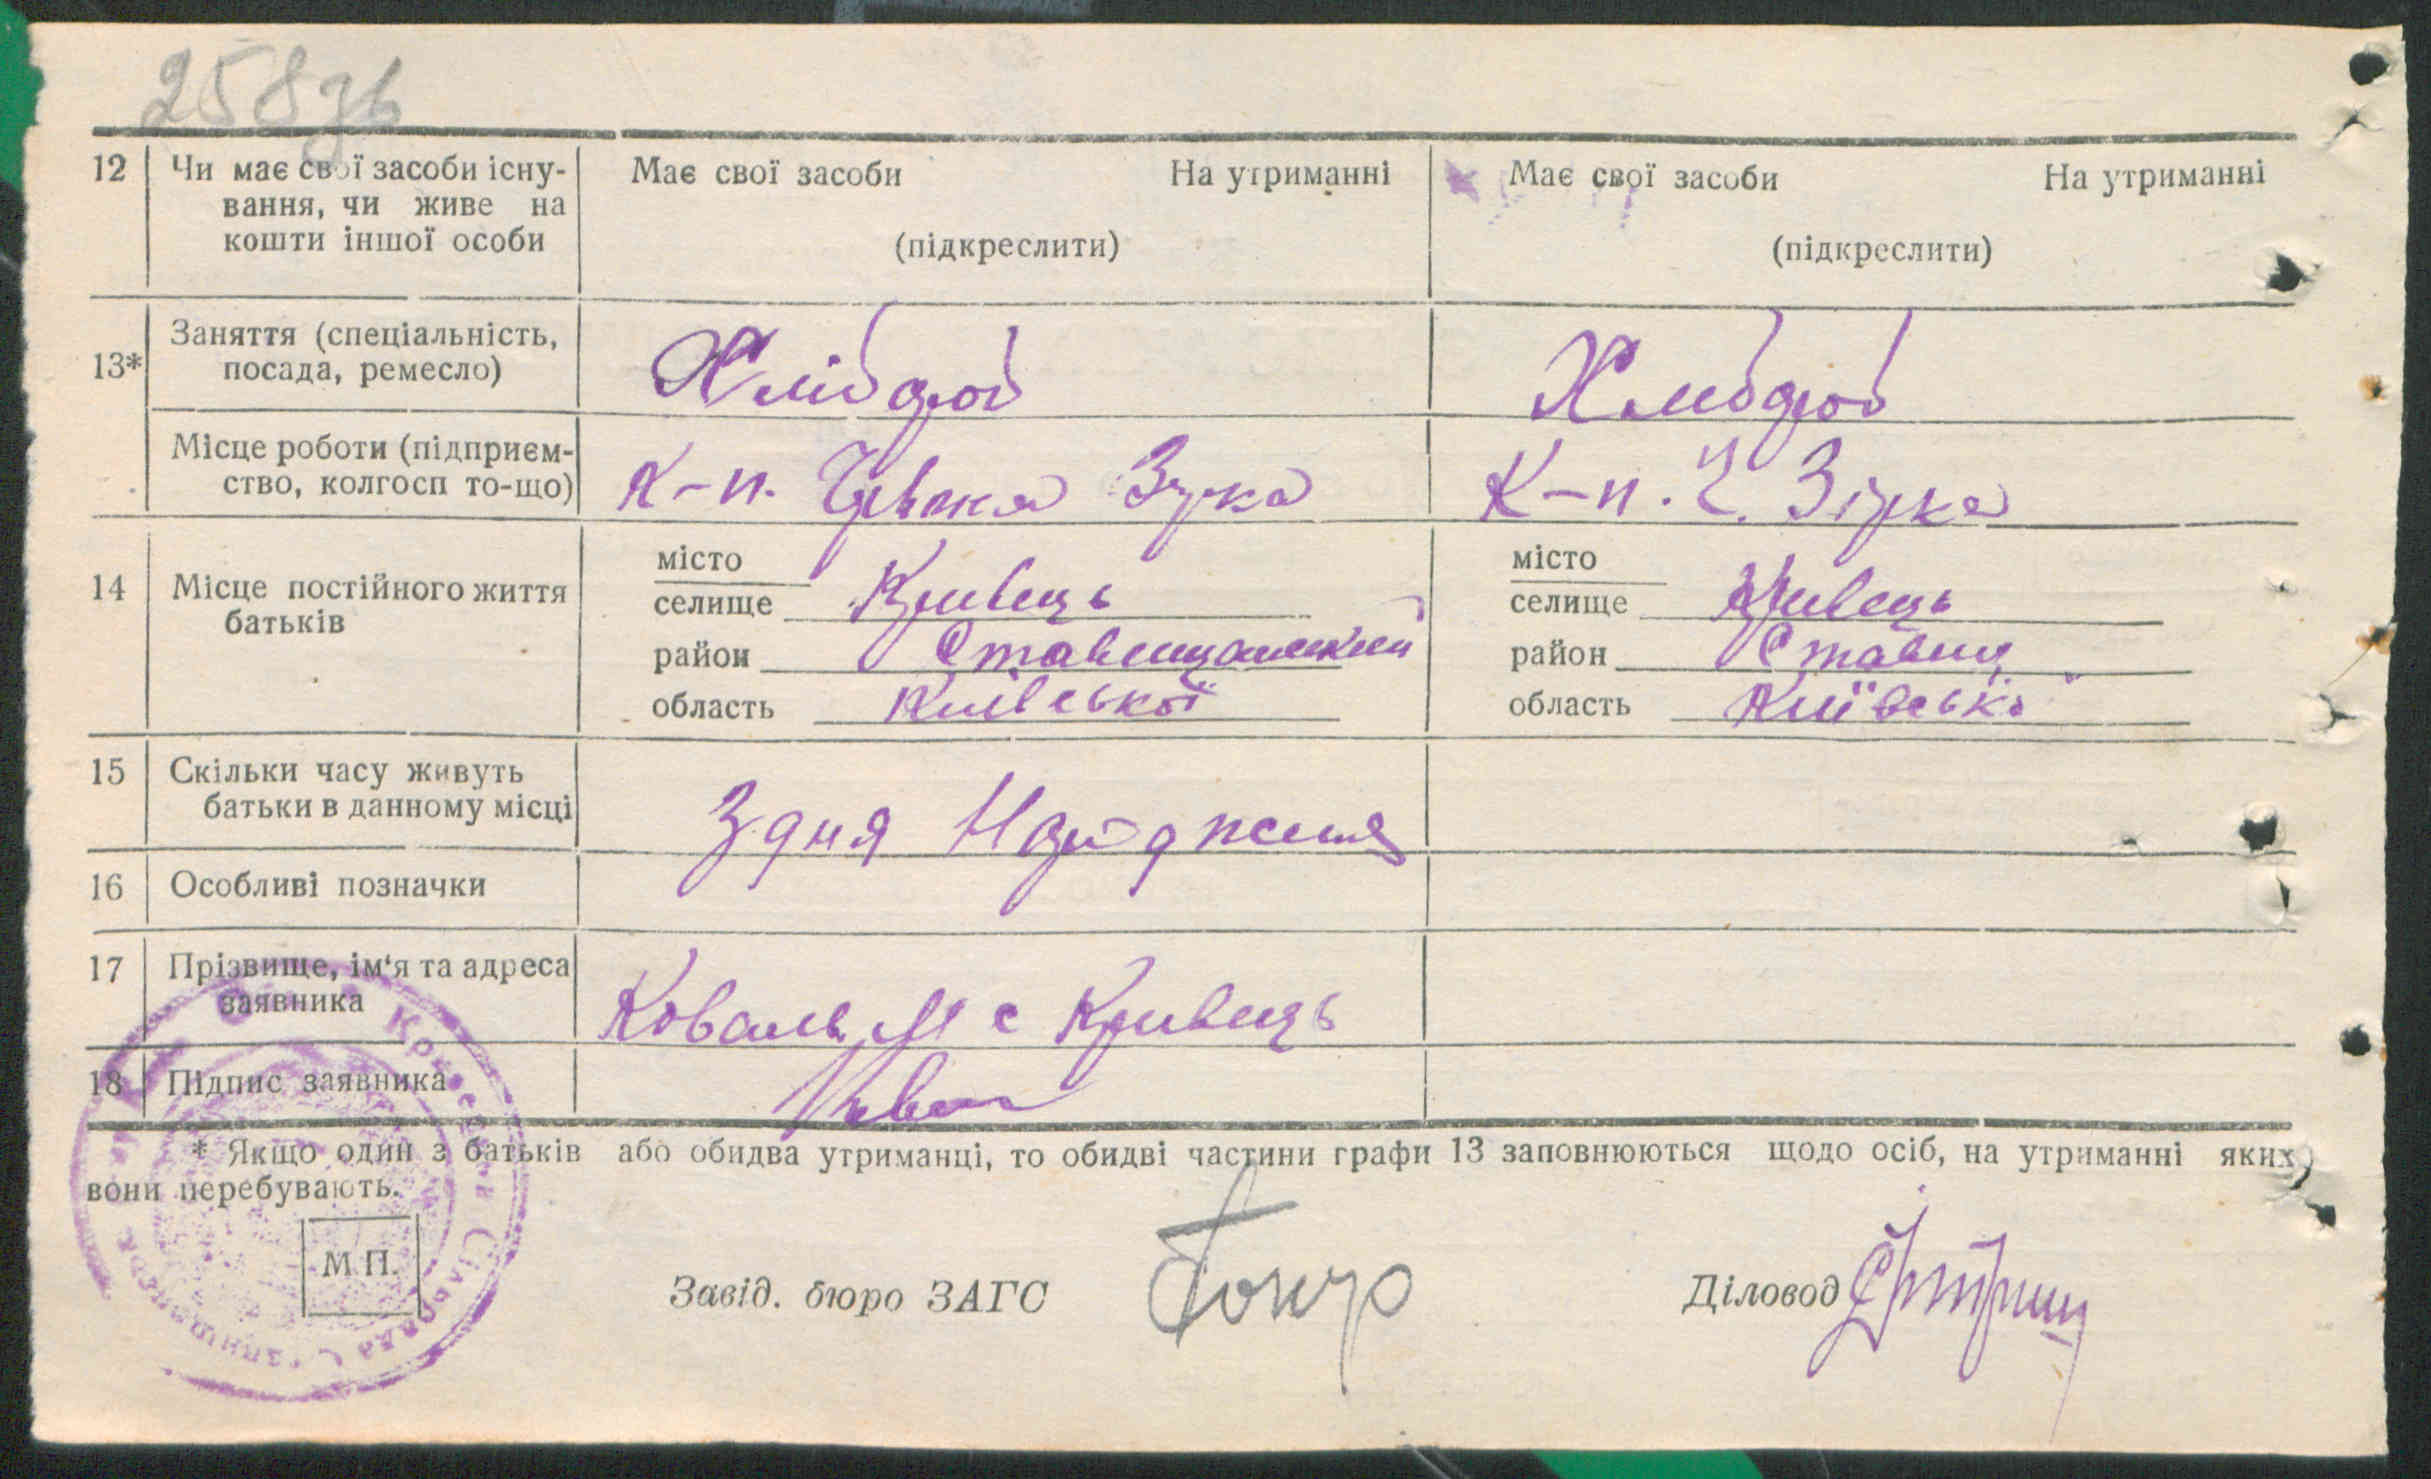 258зв
12 Чи має свої засоби існу- Має свої засоби На утриманні Має свої засоби На утриманні
вання, чи живе на
кошти іншої особи (підкреслити) (підкреслити)
13* Заняття (спеціальність, Хлібороб Хлібороб
посада, ремесло)
Місце роботи (підприєм- К-п. Червона Зірка К-п. Ч. Зірка
ство, колгосп то-що)
14 Місце постійного життя батьків
місто місто
селище Кривець селище Кривець
район Ставищанський район Ставищ
область Київської область Київської
15 Скільки часу живуть З дня Народження
батьки в данному місці
16 Особливі позначки
17 Прізвище, ім‘я та адреса Коваль М с Кривець
заявника
18 Підпис заявника
* Якщо один з батьків або обидва утриманці, то обидві частини графи 13 заповнюються щодо осіб, на утриманні яких
вони перебувають.
М.П.
Завід. бюро ЗАГС Діловод